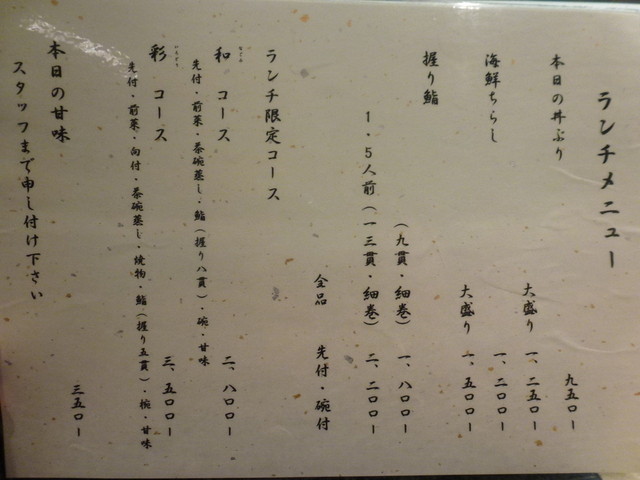 ランチメニュー
本日の丼ぶり 九五〇ー
大盛り 一、二五〇ー
海鮮ちらし 一、二〇〇ー
大盛り 一、五〇〇ー
握り鮨 (九貫・細巻) 一、八〇〇ー
1.5人前(一三貫・細巻) 二、二〇〇ー
全品 先付・碗付
ランチ限定コース
和コース 二、八〇〇ー
なごみ
先付・前菜・茶碗蒸し・鮨(握り八貫)・碗・甘味
彩コース 三、五〇〇ー
いろどり
先付・前菜・向付・茶碗蒸し・焼物・鮨(握り五貫)・椀・甘味
本日の甘味 三五〇ー
スタッフまで申し付け下さい